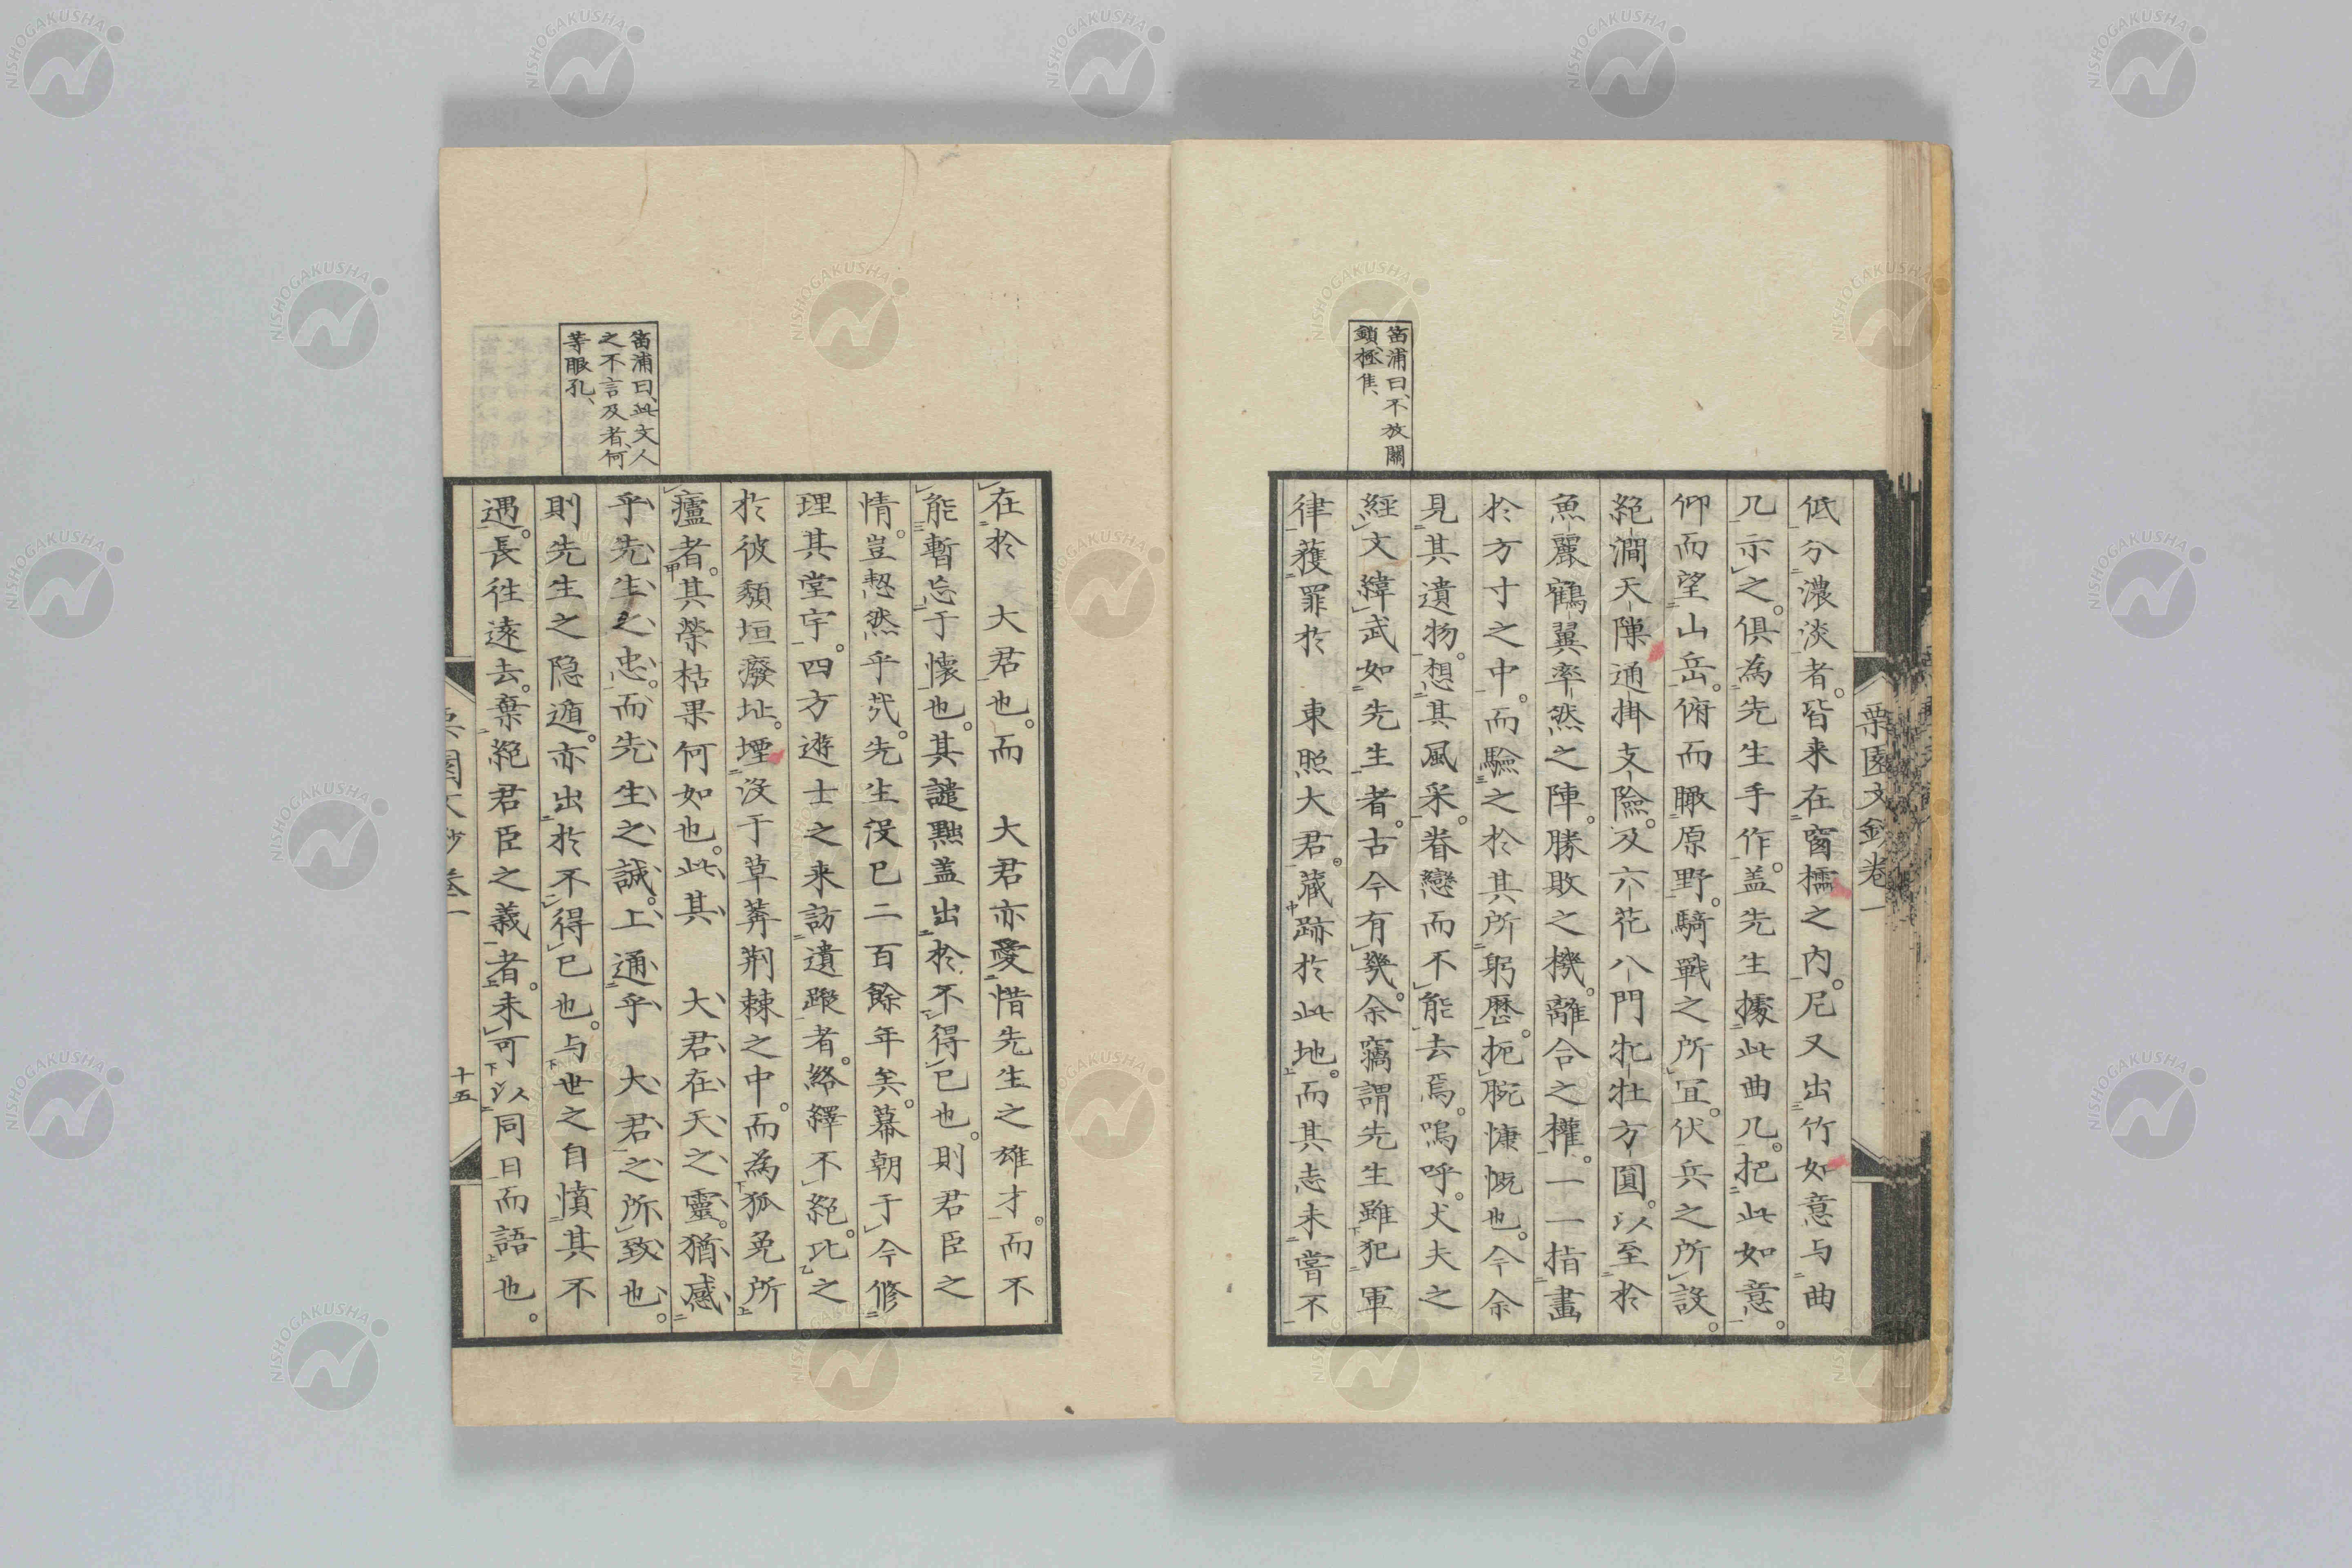 栗園文鈔卷一
低分濃淡者。皆来在窗櫺之内。尼又出竹如意与曲
几示之。俱為先生手作。盖先生據此曲几。把此如意。
仰而望山岳。俯而瞰原野。騎戰之所宜。伏兵之所設。
絶澗天隙通掛支險。及六花八門牝牡方圓。以至於
魚麗鶴翼率然之陣。勝敗之機。離合之權。一一指畫
於方寸之中。而驗之於其所躬歷。扼腕慷慨也。今余
見其遺物。想其風采。眷戀而不能去焉。嗚呼。丈夫之
經文緯武如先生者。古今有幾。余竊謂先生雖犯軍
律䕶罪於　東照大君。蔵跡於此地。而其志未嘗不
笛浦曰、不放關
鎖、極隹、
在於　大君也。而　大君亦愛惜先生之雄才。而不
能暫忘于懷也。其譴黜盖出於不得已也。則君臣之
情。豈恝然乎哉。先生没已二百餘年矣。幕朝于今修
理其堂宇。四方遊士之来訪遺蹤者。絡繹不絶。比之
於彼頽垣廢址。堙没于草莽荆棘之中。而為狐兔所
瘟者。其榮枯果何如也。此其　大君在天之靈。猶感
乎先生之忠。而先生之誠。上通乎　大君之所致也。
則先生之隐遁。亦出於不得已也。与世之自憤其不
遇。長往遠去。棄絶君臣之義者。未可以同日而語也。
笛浦曰、此文人
之不言及者、何
等眼孔、
栗園文鈔卷一
十五